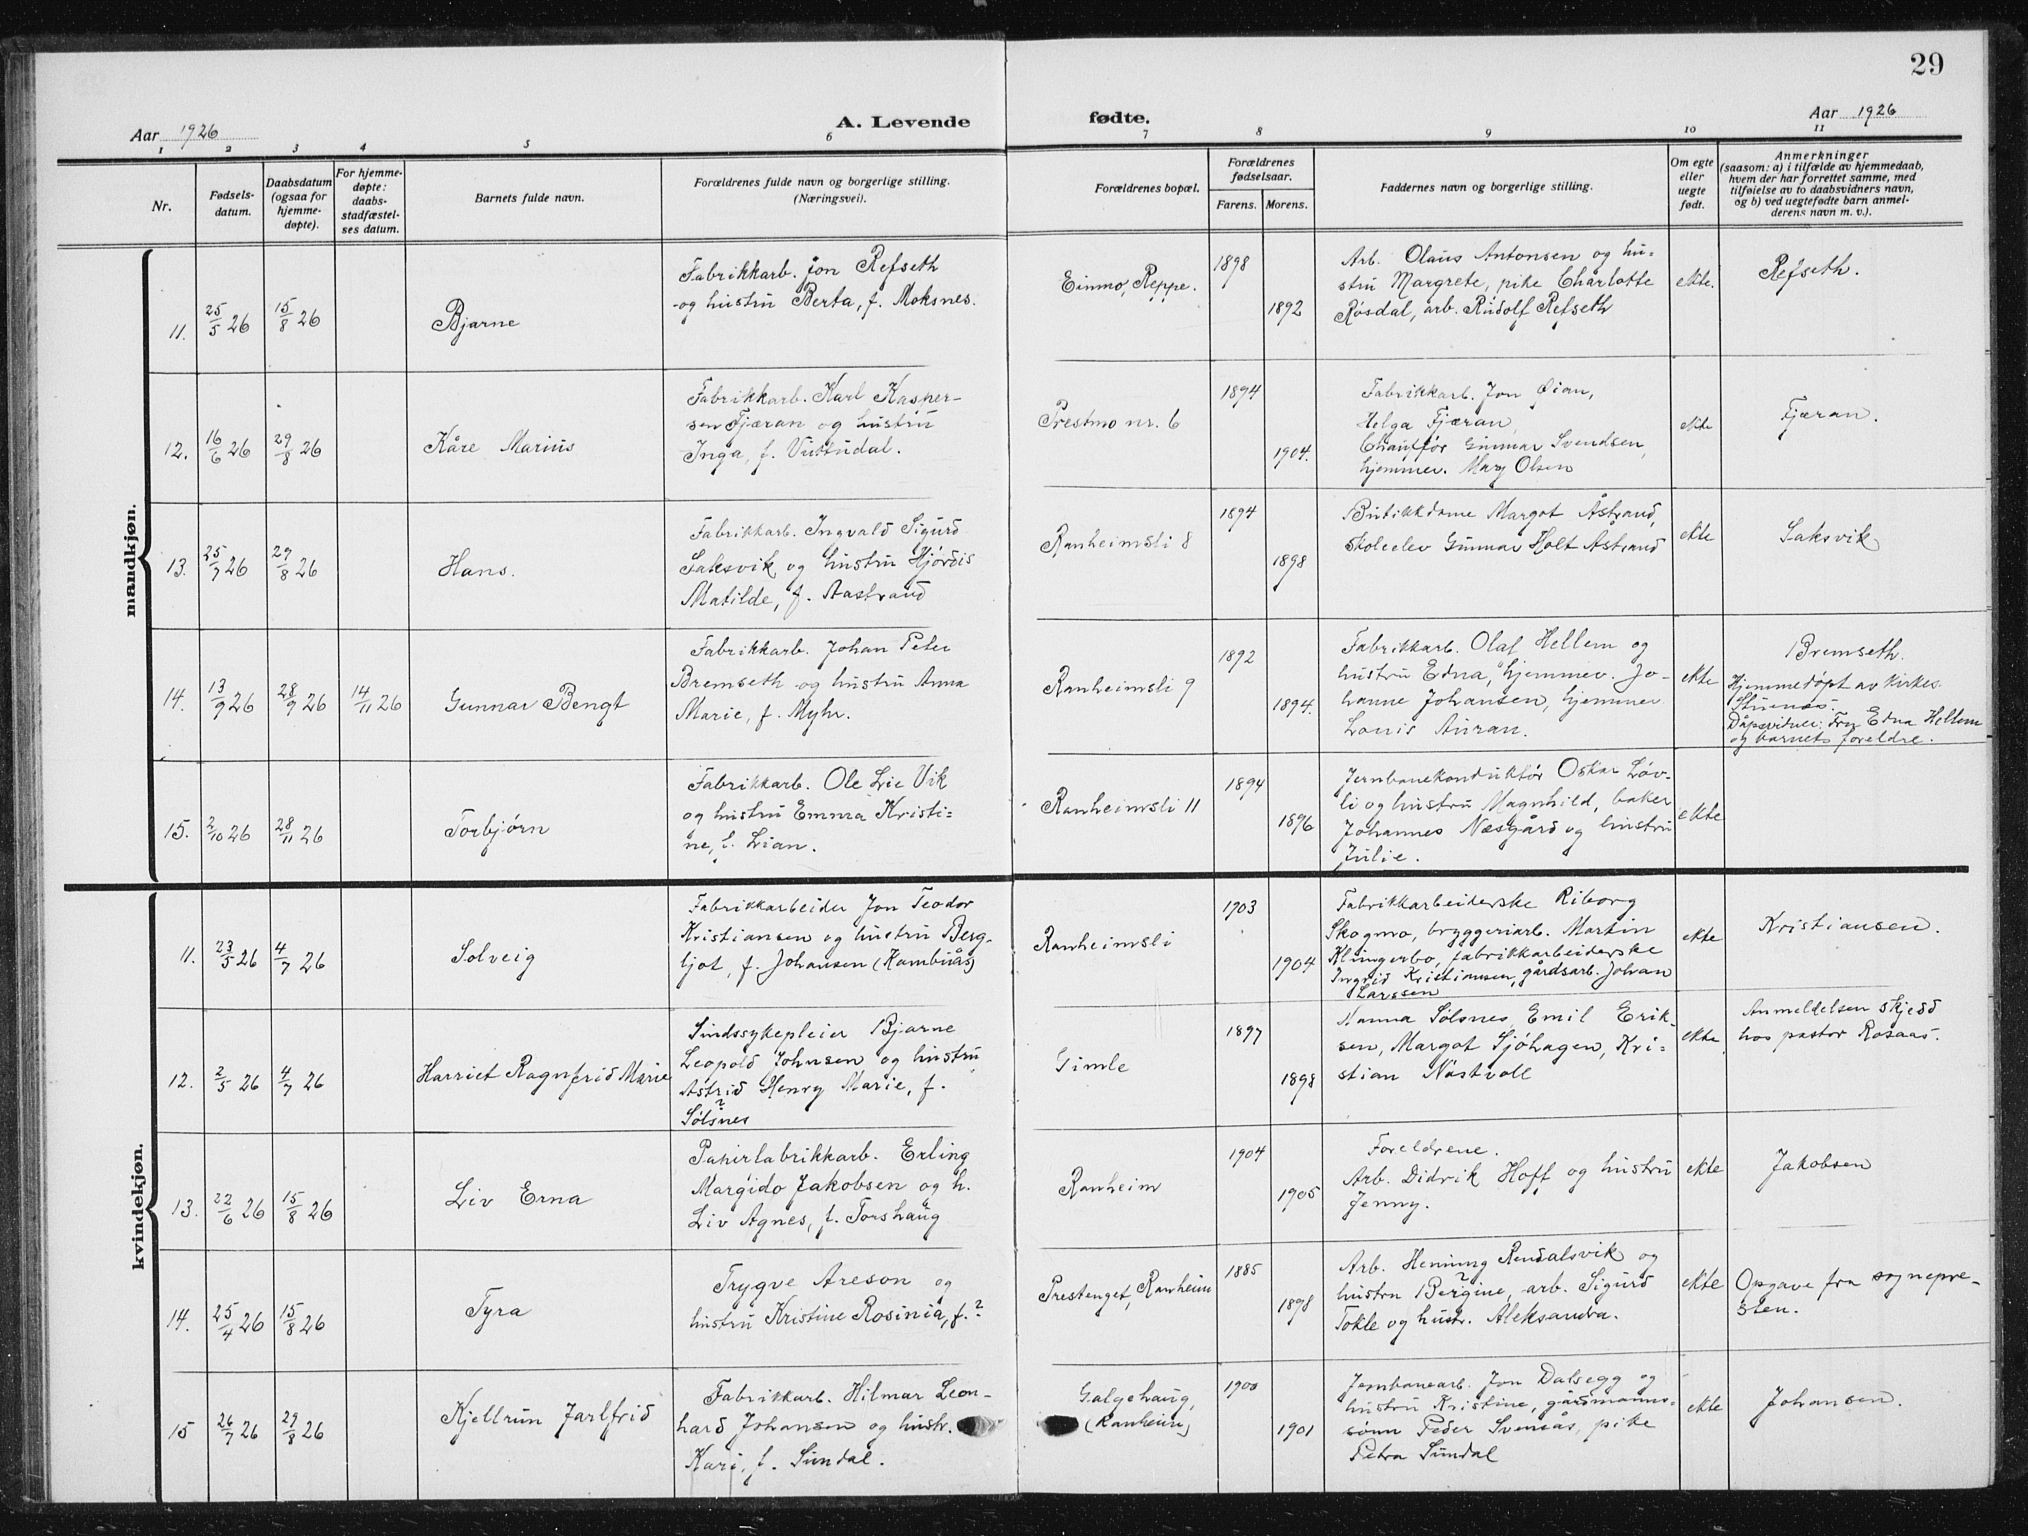 29
Aar 1926
A. Levende fødte.
Aar 1926
1 2 3 4 5 6 7 8 9 10 11
Nr.
Fødsels-
datum.
Daabsdatum
(ogsaa for
hjemme-
døpte).
For hjemme-
døpte:
daabs-
stadfæstel-
ses datum.
Barnets fulde navn.
Forældrenes fulde navn og borgerlige stilling.
(Næringsvei).
Forældrenes bopæl.
Forældrenes
fødselsaar.
Farens. Morens.
Faddernes navn og borgerlige stilling.
Om egte
eller
uegte
født.
Anmerkninger
(saasom: a) i tilfælde av hjemmedaab,
hvem der har forrettet samme, med
tilføielse av to daabsvidners navn,
og b) ved uegtefødte barn anmel-
derens navn m. v.).
mandkjøn.
11.
25/5 26
15/8 26
Bjarne
Fabrikkarb. Jon Refseth
og hustru Berta, f. Moksnes.
Einmo, Reppe.
1898
1892
Arb. Olaus Antonsen og hu-
stru Margrete, pike Charlotte
Røsdal, arb. Rudolf Refseth
ekte.
Refseth.
12.
16/6 26
29/8 26
Kåre Marius
Fabrikkarb. Karl Kasper-
sen Fjæran og hustru
Inga, f. Vuttudal.
Prestmo nr. 6
1894
1904.
Fabrikkarb. Jon Øian,
Helga Fjæran,
Chauffør Gunnar Svendsen,
hjemmev. Mary Olsen
ekte
Fjæran.
13.
25/7 26
29/8 26
Hans.
Fabrikkarb. Ingvald Sigurd
Saksvik og hustru Hjørdis
Matilde, f. Aastrand
Ranheimsli 8
1894
1898
Butikkdame Margot Åstrand,
skoleelev Gunnar Holt Åstrand
ekte
Saksvik
14.
13/9 26
28/9 26
14/11 26
Gunnar Bengt
Fabrikkarb. Johan Peter
Bremseth og hustru Anna
Marie, f. Myhr.
Ranheimsli 9
1892
1894.
Fabrikkarb. Olaf Hellem og
hustru Edna, hjemmev. Jo-
hanne Johansen, hjemmev
Louis Auran.
ekte
Bremseth.
Hjemmedøpt av kirkes.
Stuenæs.
Dåpsvidner: Fru Edna Hellem
og barnets foreldre.
15.
2/10 26
28/11 26
Torbjørn
Fabrikkarb. Ole Lie Vik
og hustru Emma Kristi-
ne, f. Lian.
Ranheimsli 11
1894
1896
Jernbanekonduktør Oskar Løv-
li og hustru Magnhild, baker
Johannes Næsgård og hustru
Julie.
ekte
kvindekjøn.
11.
23/5 26
4/7 26
Solveig
Fabrikkarbeider Jon Teodor
Kristiansen og hustru Berg-
ljot, f. Johansen (Kambuås)
Ranheimsli
1903
1904
Fabrikkarbeiderske Riborg
Skogmo, bryggeriarb. Martin
Klingerbo, fabrikkarbeiderske
Ingrid Kristiansen, gårdsarb. Johan
Larssen
ekte
Kristiansen.
12.
2/5 26
4/7 26
Harriet Ragnfrid Marie
Sindssykepleier Bjarne
Leopold Johnsen og hustru
Astrid Henry Marie, f.
?
Sølsnes
Gimle
1897
1898
Nanna Sølsnes Emil Erik-
sen, Margot Sjøhagen, Kri-
stian Nøstvoll
ekte
Anmeldelsen skjedd
hos pastor Rosaas.
13.
22/6 26
15/8 26
Liv Erna
Papirfabrikkarb. Erling
Margido Jakobsen og h.
Liv Agnes, f. Torshaug
Ranheim
1904
1905
Foreldrene.
Arb. Didrik Hoff og hustru
Jenny.
ekte
Jakobsen
14.
25/4 26
15/8 26
Tyra
Trygve Areson og
hustru Kristine Rosinia, f. ?
Prestenget, Ranheim
1885
1898
Arb. Henning Rendalsvik og
?
hustru Bergine, arb. Sigurd
Tokle og hustr. Aleksandra.
ekte
Opgave fra sognepre-
sten.
15
26/7 26
29/8 26
Kjellrun Jarlfrid
Fabrikkarb. Hilmar Leon-
hard Johansen og hustr.
Kari, f. Sundal.
Galgehaug,
(Ranheim)
1900
1901
Jernbanearb. Jon Dalsegg og
hustru Kristine, gårdmanns-
sønn Peder Svensås, pike
Petra Sundal
ekte
Johansen.